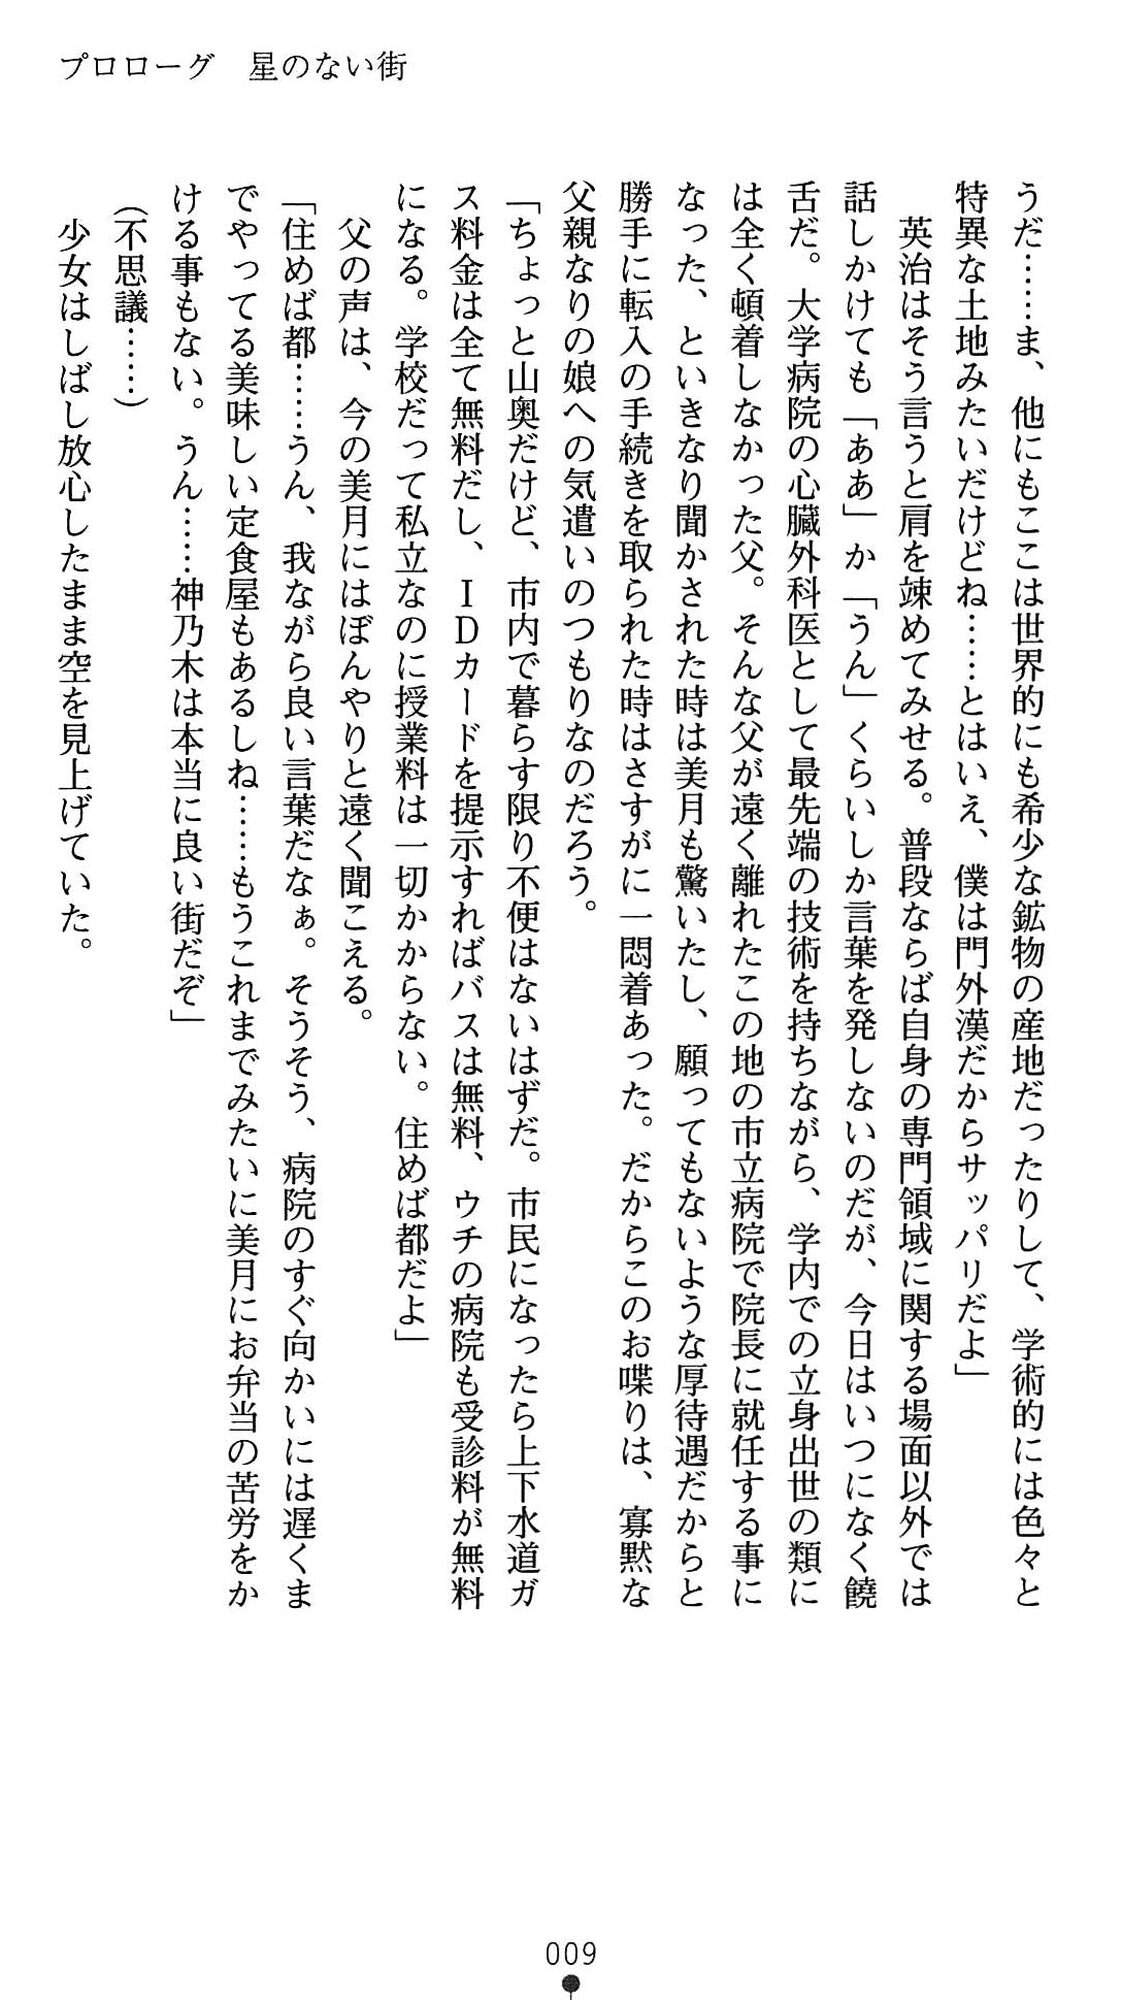 プロローグ　星のない街
うだ……ま、他にもここは世界的にも希少な鉱物の産地だったりして、学術的には色々と
特異な土地みたいだけどね……とはいえ、僕は門外漢だからサッパリだよ」
　英治はそう言うと肩を竦めてみせる。普段ならば自身の専門領域に関する場面以外では
話しかけても「ああ」か「うん」くらいしか言葉を発しないのだが、今日はいつになく饒
舌だ。大学病院の心臓外科医として最先端の技術を持ちながら、学内での立身出世の類に
は全く頓着しなかった父。そんな父が遠く離れたこの地の市立病院で院長に就任する事に
なった、といきなり聞かされた時は美月も驚いたし、願ってもないような厚待遇だからと
勝手に転入の手続きを取られた時はさすがに一悶着あった。だからこのお喋りは、寡黙な
父親なりの娘への気遣いのつもりなのだろう。
「ちょっと山奥だけど、市内で暮らす限り不便はないはずだ。市民になったら上下水道ガ
ス料金は全て無料だし、ＩＤカードを提示すればバスは無料、ウチの病院も受診料が無料
になる。学校だって私立なのに授業料は一切かからない。住めば都だよ」
　父の声は、今の美月にはぼんやりと遠く聞こえる。
「住めば都……うん、我ながら良い言葉だなぁ。そうそう、病院のすぐ向かいには遅くま
でやってる美味しい定食屋もあるしね……もうこれまでみたいに美月にお弁当の苦労をか
ける事もない。うん……神乃木は本当に良い街だぞ」
（不思議……）
　少女はしばし放心したまま空を見上げていた。
009